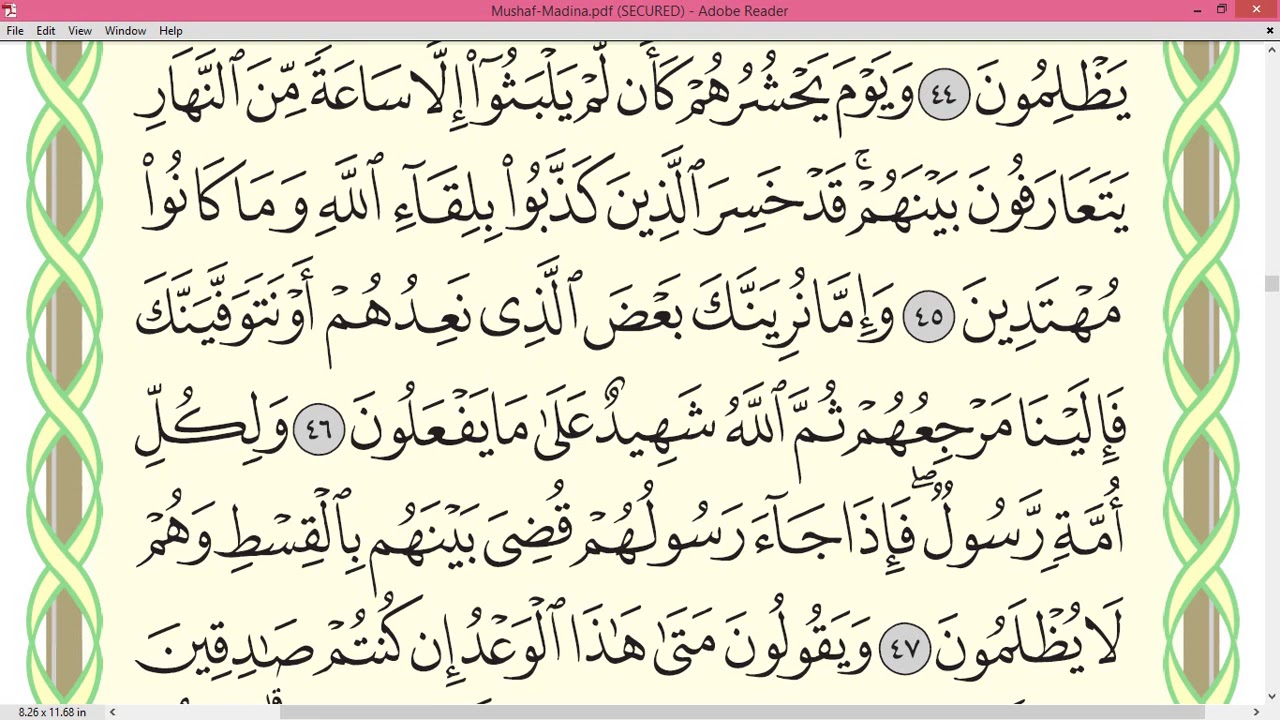 Mushaf-Madina.pdf (SECURED) - Adobe Reader
File Edit View Window Help
يَظْلِمُونَ ٤٤ وَيَوْمَ يَحْشُرُهُمْ كَأَن لَّمْ يَلْبَثُوٓا۟ إِلَّا سَاعَةً مِّنَ ٱلنَّهَارِ
يَتَعَارَفُونَ بَيْنَهُمْ ۚ قَدْ خَسِرَ ٱلَّذِينَ كَذَّبُوا۟ بِلِقَآءِ ٱللَّهِ وَمَا كَانُوا۟
مُهْتَدِينَ ٤٥ وَإِمَّا نُرِيَنَّكَ بَعْضَ ٱلَّذِى نَعِدُهُمْ أَوْ نَتَوَفَّيَنَّكَ
فَإِلَيْنَا مَرْجِعُهُمْ ثُمَّ ٱللَّهُ شَهِيدٌ عَلَىٰ مَا يَفْعَلُونَ ٤٦ وَلِكُلِّ
أُمَّةٍ رَّسُولٌ ۖ فَإِذَا جَآءَ رَسُولُهُمْ قُضِىَ بَيْنَهُم بِٱلْقِسْطِ وَهُمْ
لَا يُظْلَمُونَ ٤٧ وَيَقُولُونَ مَتَىٰ هَٰذَا ٱلْوَعْدُ إِن كُنتُمْ صَٰدِقِينَ
8.26 x 11.68 in